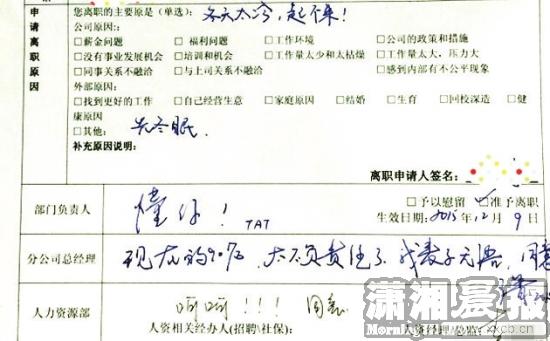 申请离职原因
您离职的主要原是(单选): 冬天太冷,起不来!
公司原因:
□薪金问题 □福利问题 □工作环境 □公司的政策和措施
□没有事业发展机会 □培训和机会 □工作量太少和太枯燥 □工作量太大,压力大
□同事关系不融洽 □与上司关系不融洽 □感到内部有不公平现象
外部原因:
□找到更好的工作 □自己经营生意 □家庭原因 □结婚 □生育 □回校深造 □健
康原因
□其他: 去冬眠.
补充原因说明:
离职申请人签名:
部门负责人 懂你! TAT
□予以慰留 准予离职
生效日期: 2015年12月9日
分公司总经理 现在的90后,太不负责任了.我表示无语,同意
人力资源部 呵呵!!! 同意
人资相关经办人(招聘\社保): 人资经理/总监:
潇湘晨报